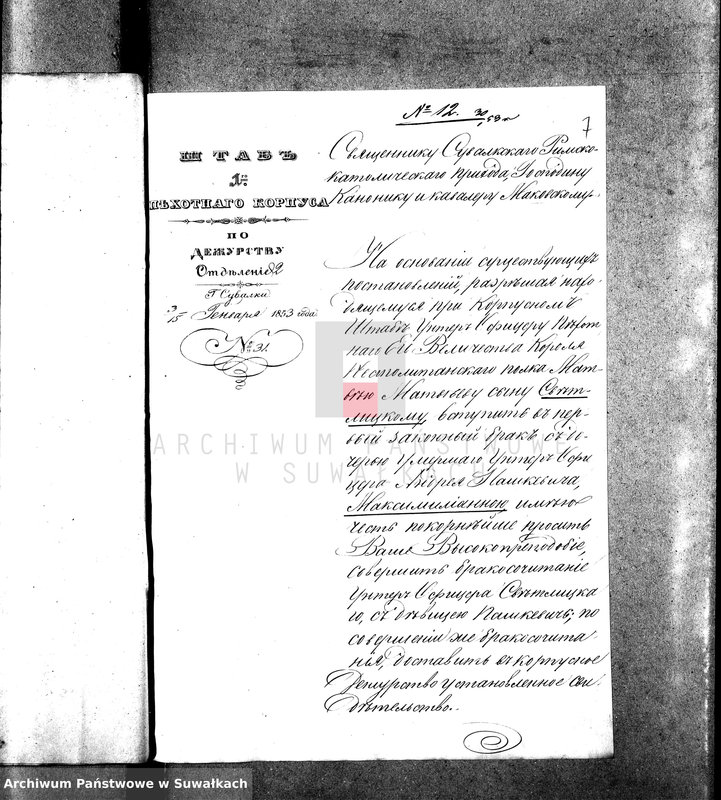 № 12. 30/1 53 г.
7
ШТАБЪ
1го
ПѢХОТНАГО КОРПУСА
ПО
ДЕЖУРСТВУ
Отдѣленіе 2
Г. Сувалки
3/15 Генваря 1853 года
№ 31.
Священнику Сувалкскаго Римско-
католическаго прихода, Господину
Канонику и кавалеру Маковскому.
На основаніи существующихъ
постановленій, разрѣшая нахо-
дящемуся при Корпусномъ
Штабѣ Унтеръ Офицеру Пѣхот
наго Его Величества Короля
Неаполитанскаго полка Мат-
вѣю Матвѣеву сыну Свѣт-
лицкому, вступить въ пер-
вый законный бракъ, съ до-
черью умершаго Унтеръ Офи-
цера Андрея Пашкевича,
Максимиліанною, имѣю
честь покорнѣйше просить
Ваше Высокопреподобіе,
совершить бракосочитаніе
Унтеръ Офицера Свѣтлицка
го, съ дѣвицею Пашкевичъ; по
совершеніи же бракосочита
нія, доставить въ корпусное
Дежурство установленное сви-
дѣтельство.
ARCHIWUM PAŃSTWOWE
W SUWAŁKACH
Archiwum Państwowe w Suwałkach